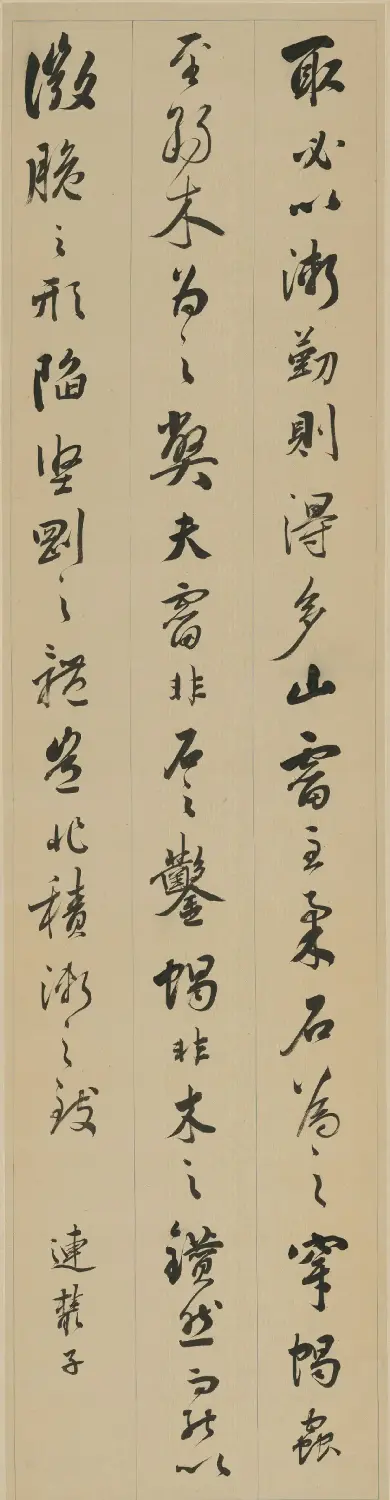 取必以漸勤則得多山霤至柔石為之穿蝎蟲
至弱木為之弊夫霤非石之鑿蝎非木之鑽然而能以
微脆之形陷堅剛之體豈非積漸之致
連叢子